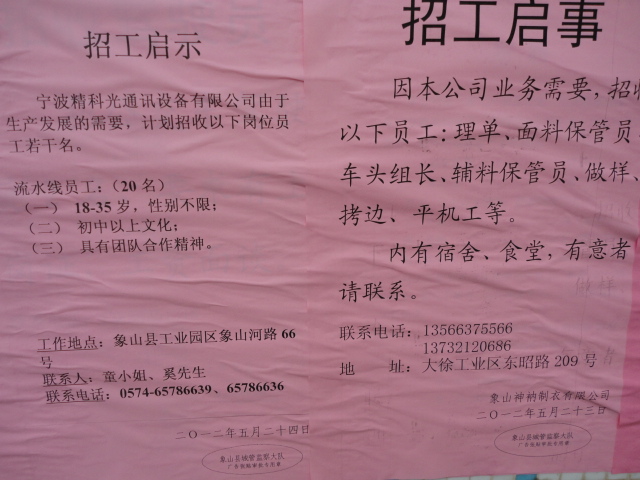 招工启示
宁波精科光通讯设备有限公司由于
生产发展的需要，计划招收以下岗位员
工若干名。
流水线员工：（20 名）
（一） 18-35 岁，性别不限；
（二） 初中以上文化；
（三） 具有团队合作精神。
工作地点：象山县工业园区象山河路 66
号
联系人：童小姐、奚先生
联系电话：0574-65786639、65786636
二○一二年五月二十四日
象山县城管监察大队
广告张贴审批专用章
招工启事
因本公司业务需要，招收
以下员工：理单、面料保管员
车头组长、辅料保管员、做样、
拷边、平机工等。
内有宿舍、食堂，有意者
请联系。
联系电话：13566375566
13732120686
地 址：大徐工业区东昭路 209 号
象山神衲制衣有限公司
二○一二年五月二十三日
象山县城管监察大队
广告张贴审批专用章